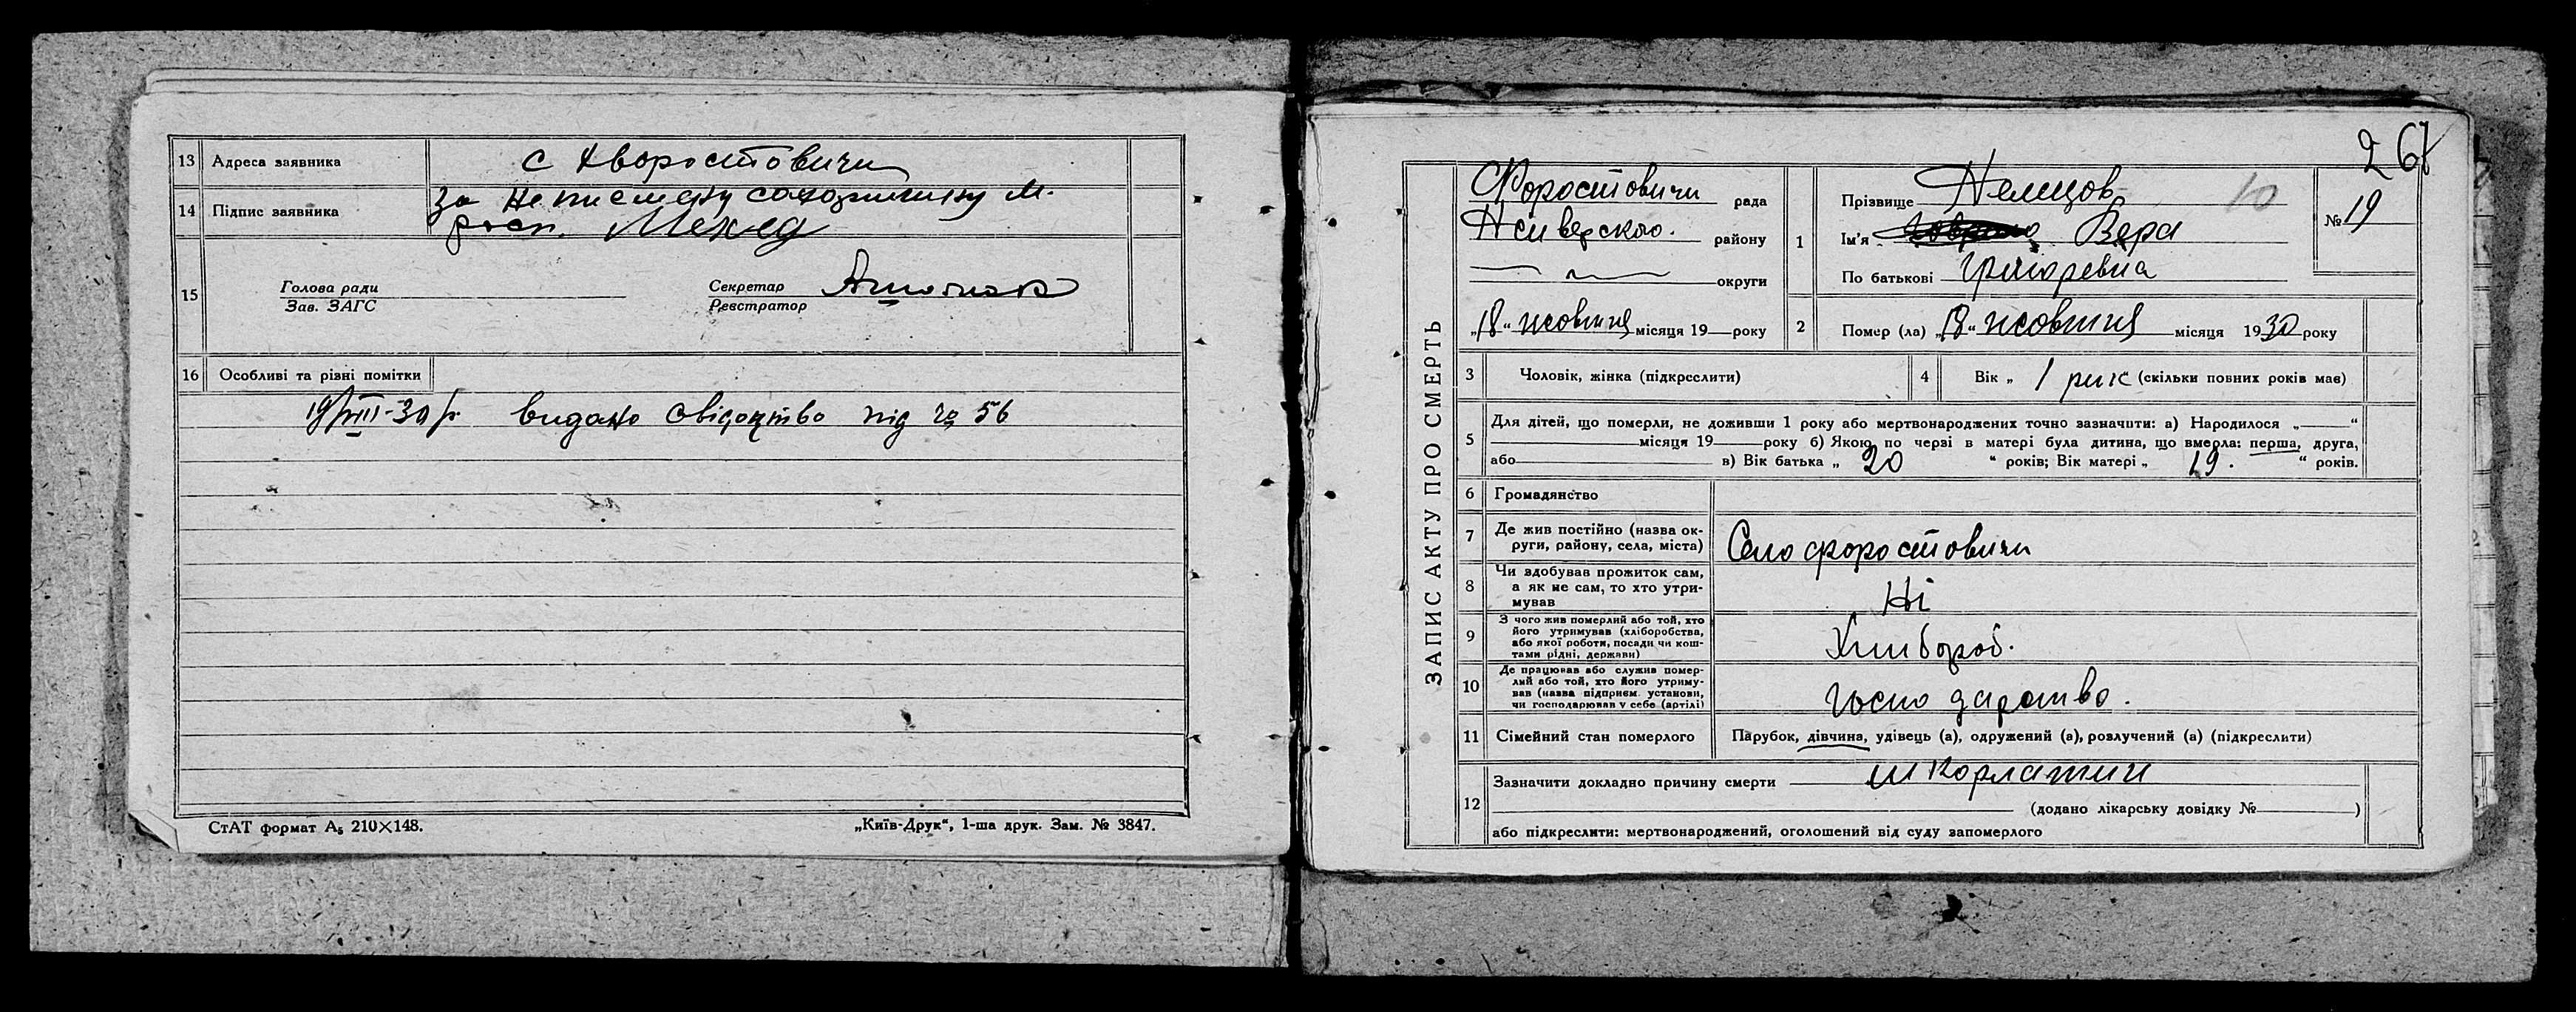 13 Адреса заявника с Хворостовичи
14 Підпис заявника за неписьмену М.
росп. Мехед
15 Голова ради
Зав. ЗАГС
Секретар
Реєстратор
16 Особливі та різні помітки
видано свідоцтво під № 56
СтАТ формат А5 210×148.
„Київ-Друк“, 1-ша друк. Зам. № 3847.
267
ЗАПИС АКТУ ПРО СМЕРТЬ
Форостовичи рада
Н сіверского. району
округи
„18“ жовтня місяця 19 року
1 Прізвище Немцов 10
Ім'я Вера
По батькові Григоревна
№ 19
2 Помер (ла) „18“ жовтня місяця 1930 року
3 Чоловік, жінка (підкреслити)
4 Вік „ 1 рик (скільки повних років мав)
5 Для дітей, що померли, не доживши 1 року або мертвонароджених точно зазначити: а) Народилося „ “
місяця 19 року б) Якою по черзі в матері була дитина, що вмерла: перша, друга,
або в) Вік батька „ 20 “ років; Вік матері „ 19. “ років.
6 Громадянство
7 Де жив постійно (назва ок-
руги, району, села, міста) Село форостовичи
8 Чи здобував прожиток сам,
а як не сам, то хто утри-
мував Ні
9 З чого жив померлий або той, хто
його утримував (хліборобства,
або якої роботи, посади чи кош-
тами рідні, держави) Хлибороб.
10 Де працював або служив помер-
лий або той, хто його утриму-
вав (назва підприєм. установи,
чи господарював у себе (артілі) госпо дарство.
11 Сімейний стан померлого Парубок, дівчина, удівець (а), одружений (а), розлучений (а) (підкреслити)
12 Зазначити докладно причину смерти шкорлатин
(додано лікарську довідку № )
або підкреслити: мертвонароджений, оголошений від суду запомерлого